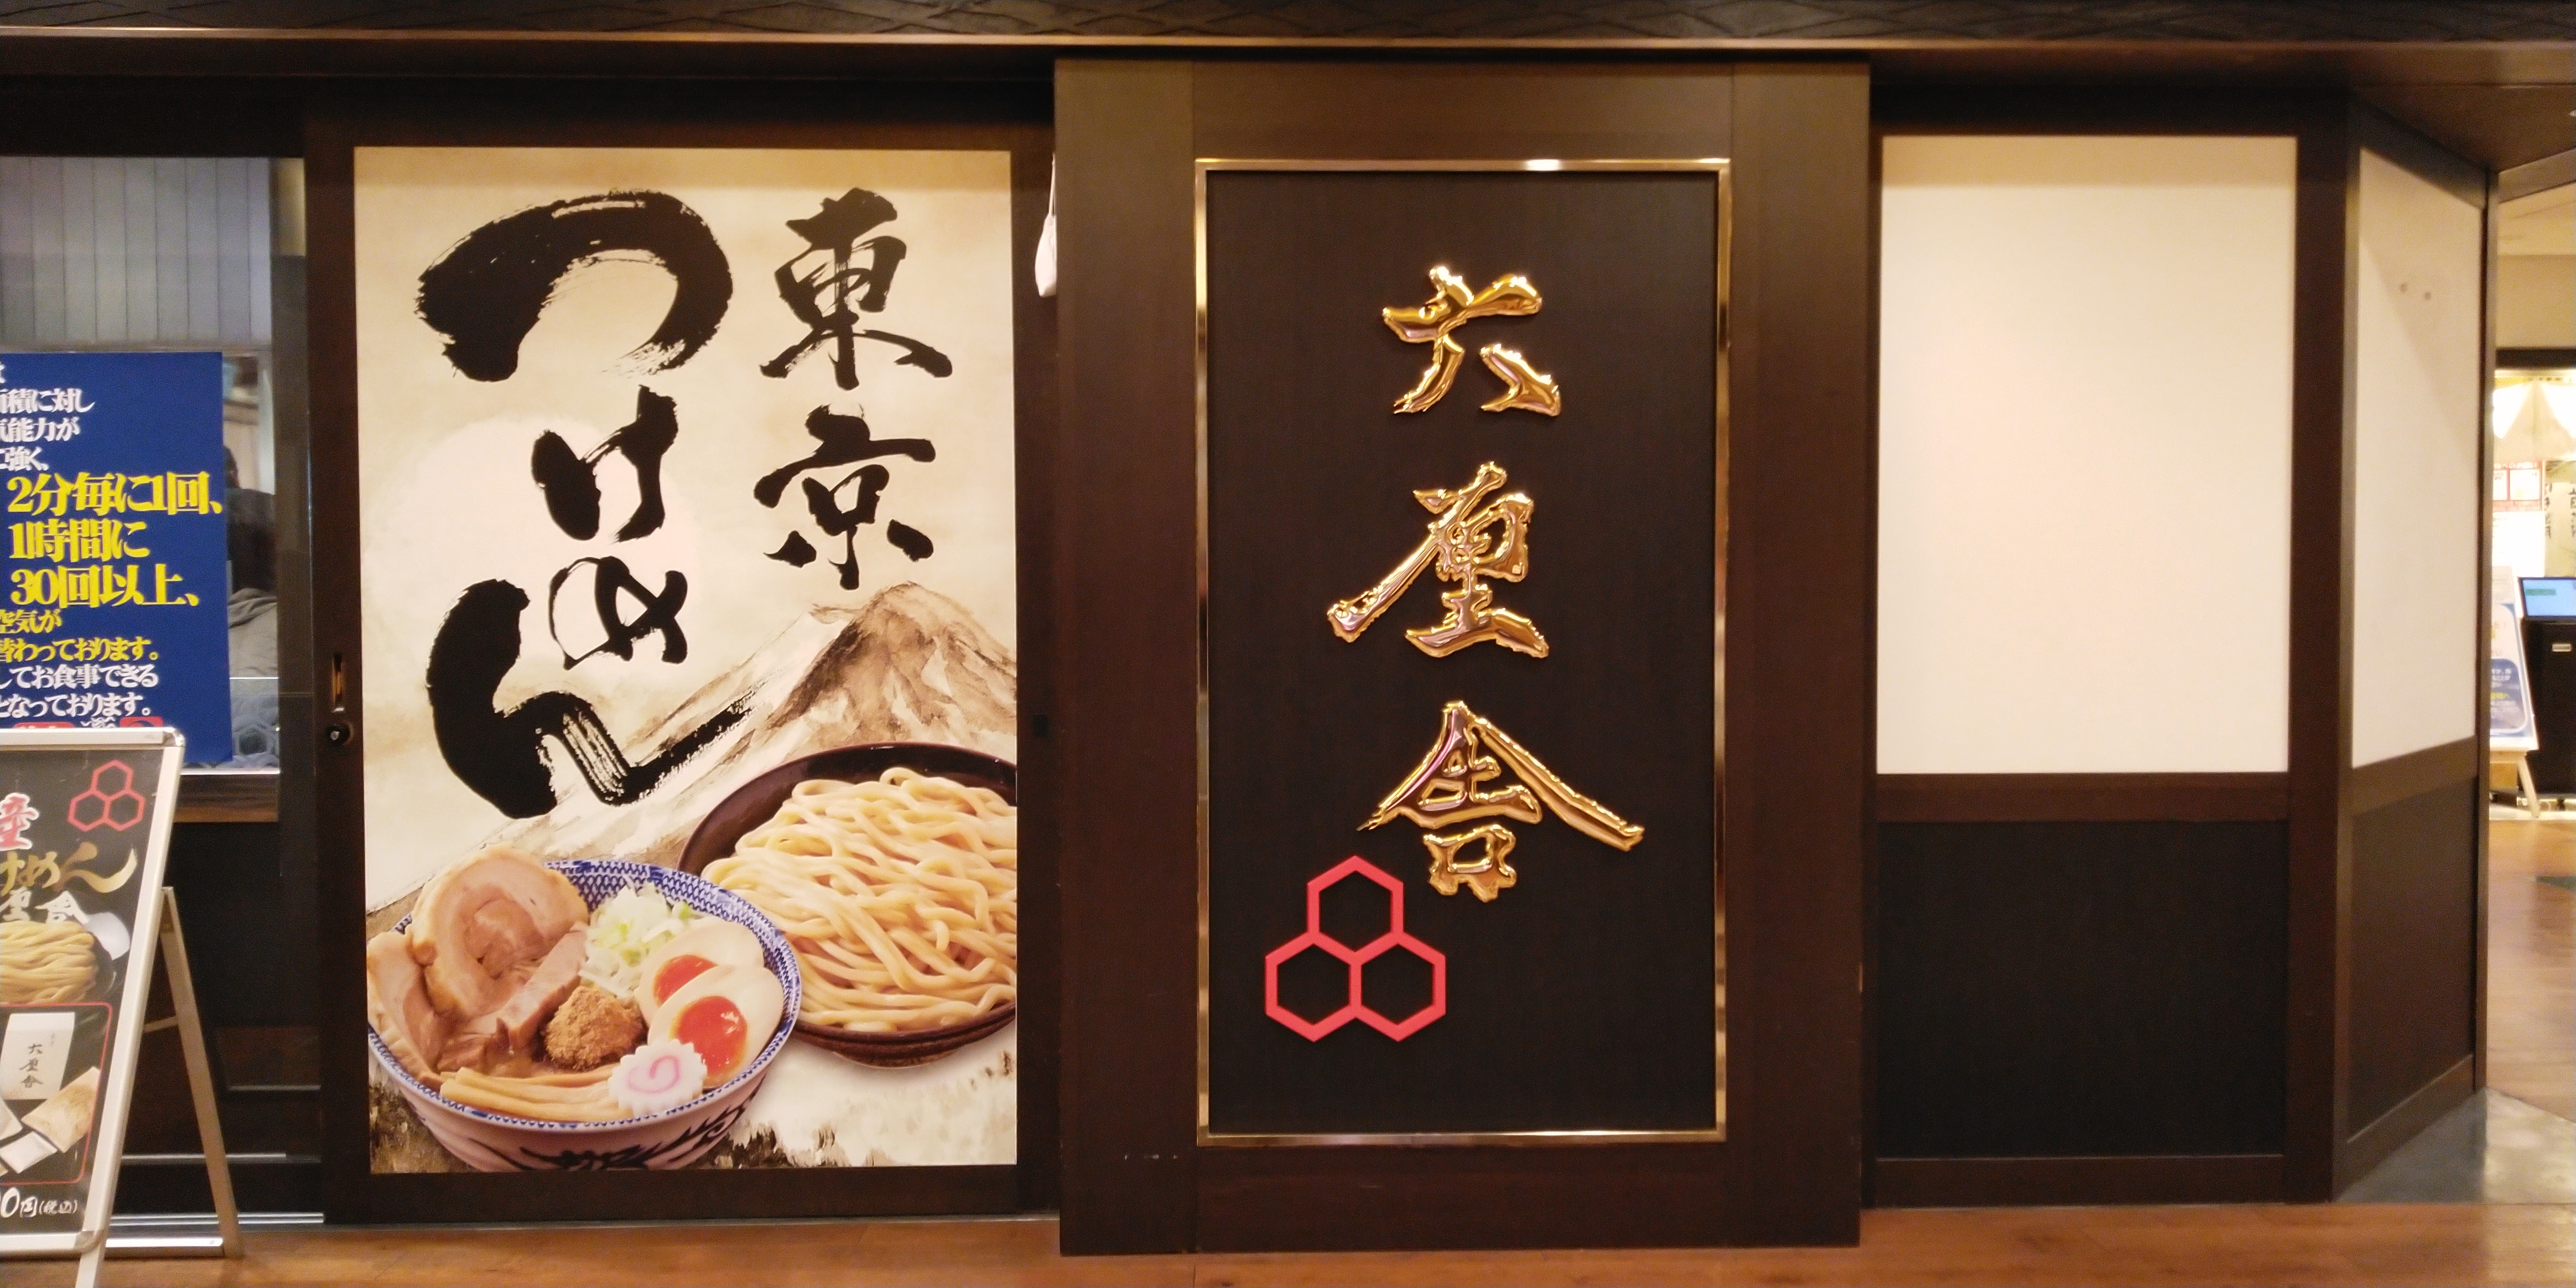 東京
つけめん
六厘舎
面積に対し
気能力が
に強く、
2分毎に1回、
1時間に
30回以上、
空気が
替わっております。
してお食事できる
となっております。
けめん
厘舎
六厘舎
0円(税込)